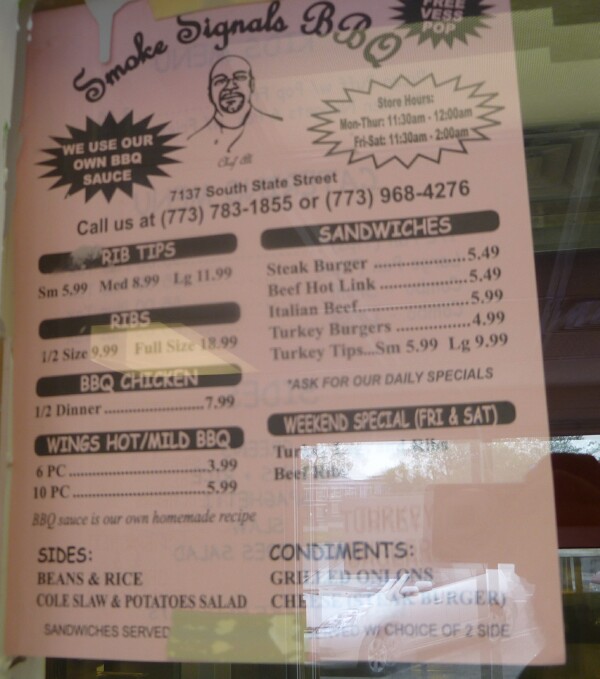 FREE
VESS
POP
Smoke Signals BBQ
WE USE OUR
OWN BBQ
SAUCE
Store Hours:
Mon-Thur: 11:30am - 12:00am
Fri-Sat: 11:30am - 2:00am
7137 South State Street
Call us at (773) 783-1855 or (773) 968-4276
RIB TIPS
Sm 5.99 Med 8.99 Lg 11.99
RIBS
1/2 Size 9.99 Full Size 18.99
BBQ CHICKEN
1/2 Dinner ........................7.99
WINGS HOT/MILD BBQ
6 PC ..............................3.99
10 PC .............................5.99
BBQ sauce is our own homemade recipe
SIDES:
BEANS & RICE
COLE SLAW & POTATOES SALAD
SANDWICHES
Steak Burger ....................5.49
Beef Hot Link ...................5.49
Italian Beef.......................5.99
Turkey Burgers ................4.99
Turkey Tips...Sm 5.99 Lg 9.99
*ASK FOR OUR DAILY SPECIALS
WEEKEND SPECIAL (FRI & SAT)
Beef Ribs
CONDIMENTS:
GRILLED ONIONS
CHEESE (STEAK BURGER)
SANDWICHES SERVED
W/ CHOICE OF 2 SIDE